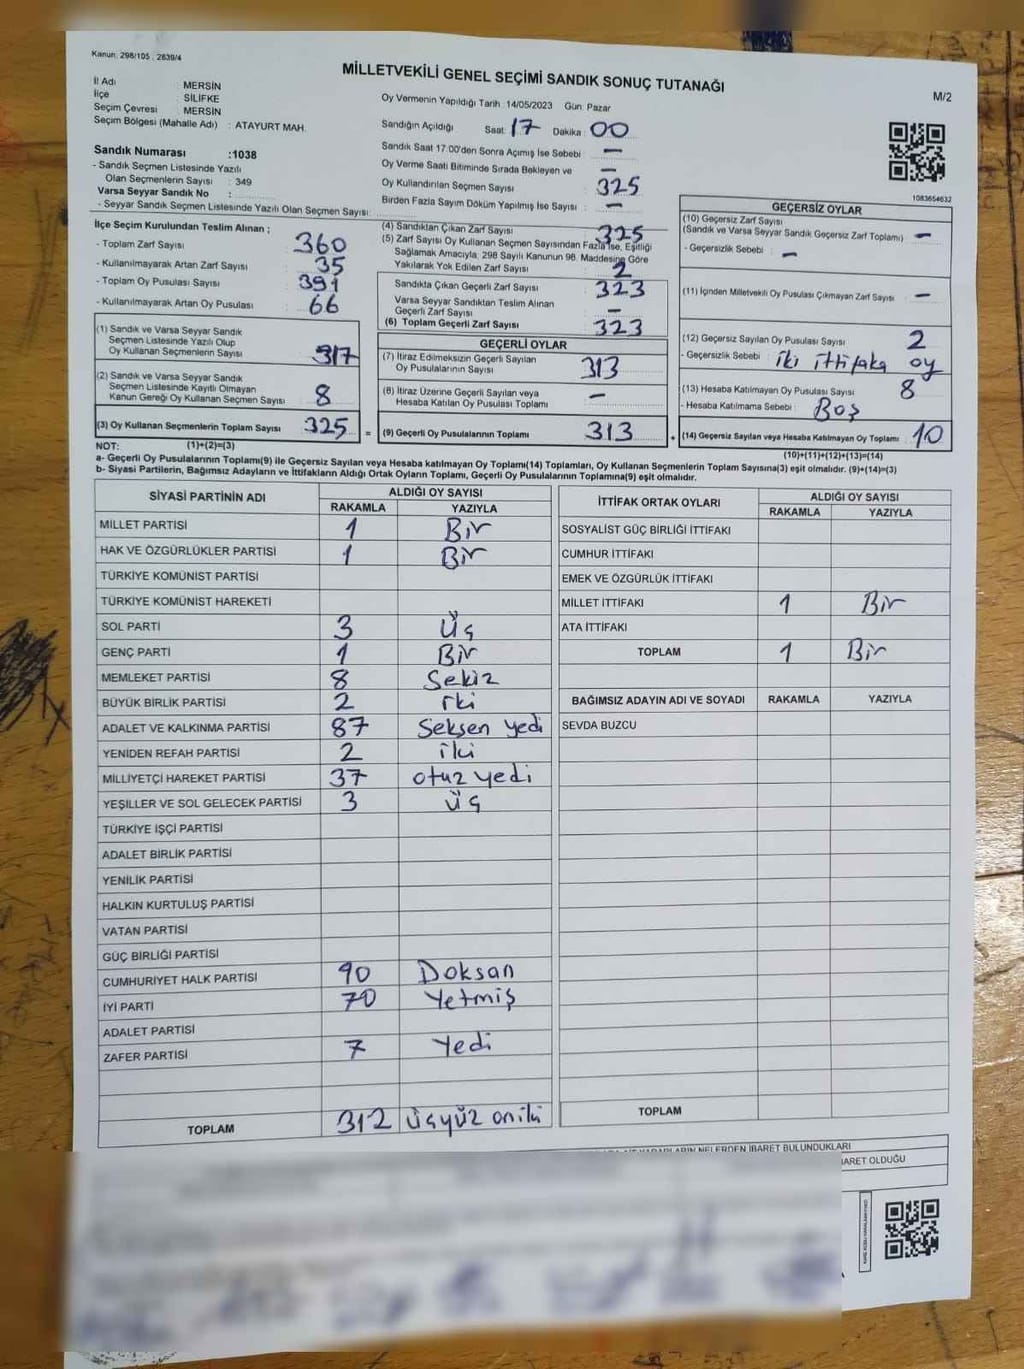 Kanun: 298/105 , 2839/4
MİLLETVEKİLİ GENEL SEÇİMİ SANDIK SONUÇ TUTANAĞI
M/2
İl Adı MERSİN
İlçe SİLİFKE
Seçim Çevresi MERSİN
Seçim Bölgesi (Mahalle Adı) : ATAYURT MAH.
Oy Vermenin Yapıldığı Tarih: 14/05/2023 Gün: Pazar
Sandığın Açıldığı Saat: 17 Dakika: 00
Sandık Saat 17:00'den Sonra Açımış İse Sebebi : —
Oy Verme Saati Bitiminde Sırada Bekleyen ve : —
Oy Kullandırılan Seçmen Sayısı : 325
Birden Fazla Sayım Döküm Yapılmış İse Sayısı : —
Sandık Numarası :1038
- Sandık Seçmen Listesinde Yazılı
Olan Seçmenlerin Sayısı : 349
Varsa Seyyar Sandık No :
- Seyyar Sandık Seçmen Listesinde Yazılı Olan Seçmen Sayısı:
1083654632
İlçe Seçim Kurulundan Teslim Alınan ;
- Toplam Zarf Sayısı : 360
- Kullanılmayarak Artan Zarf Sayısı : 35
- Toplam Oy Pusulası Sayısı : 391
- Kullanılmayarak Artan Oy Pusulası : 66
(1) Sandık ve Varsa Seyyar Sandık
Seçmen Listesinde Yazılı Olup
Oy Kullanan Seçmenlerin Sayısı : 317
(2) Sandık ve Varsa Seyyar Sandık
Seçmen Listesinde Kayıtlı Olmayan
Kanun Gereği Oy Kullanan Seçmen Sayısı : 8
(3) Oy Kullanan Seçmenlerin Toplam Sayısı : 325
(4) Sandıktan Çıkan Zarf Sayısı : 325
(5) Zarf Sayısı Oy Kullanan Seçmen Sayısından Fazla İse, Eşitliği
Sağlamak Amacıyla, 298 Sayılı Kanunun 98. Maddesine Göre
Yakılarak Yok Edilen Zarf Sayısı : 2
Sandıkta Çıkan Geçerli Zarf Sayısı : 323
Varsa Seyyar Sandıktan Teslim Alınan
Geçerli Zarf Sayısı : —
(6) Toplam Geçerli Zarf Sayısı : 323
GEÇERLİ OYLAR
(7) İtiraz Edilmeksizin Geçerli Sayılan
Oy Pusulalarının Sayısı : 313
(8) İtiraz Üzerine Geçerli Sayılan veya
Hesaba Katılan Oy Pusulası Toplamı : —
= (9) Geçerli Oy Pusulalarının Toplamı : 313
GEÇERSİZ OYLAR
(10) Geçersiz Zarf Sayısı
(Sandık ve Varsa Seyyar Sandık Geçersiz Zarf Toplamı) : —
- Geçersizlik Sebebi : —
(11) İçinden Milletvekili Oy Pusulası Çıkmayan Zarf Sayısı : —
(12) Geçersiz Sayılan Oy Pusulası Sayısı : 2
- Geçersizlik Sebebi : iki ittifaka oy
(13) Hesaba Katılmayan Oy Pusulası Sayısı : 8
- Hesaba Katılmama Sebebi : Boş
+ (14) Geçersiz Sayılan veya Hesaba Katılmayan Oy Toplamı : 10
NOT: (1)+(2)=(3)
(10)+(11)+(12)+(13)=(14)
a- Geçerli Oy Pusulalarının Toplamı(9) ile Geçersiz Sayılan veya Hesaba katılmayan Oy Toplamı(14) Toplamları, Oy Kullanan Seçmenlerin Toplam Sayısına(3) eşit olmalıdır. (9)+(14)=(3)
b- Siyasi Partilerin, Bağımsız Adayların ve İttifakların Aldığı Ortak Oyların Toplamı, Geçerli Oy Pusulalarının Toplamına(9) eşit olmalıdır.
SİYASİ PARTİNİN ADI ALDIĞI OY SAYISI
RAKAMLA YAZIYLA
MİLLET PARTİSİ 1 Bir
HAK VE ÖZGÜRLÜKLER PARTİSİ 1 Bir
TÜRKİYE KOMÜNİST PARTİSİ
TÜRKİYE KOMÜNİST HAREKETİ
SOL PARTİ 3 Üç
GENÇ PARTİ 1 Bir
MEMLEKET PARTİSİ 8 Sekiz
BÜYÜK BİRLİK PARTİSİ 2 İki
ADALET VE KALKINMA PARTİSİ 87 Seksen yedi
YENİDEN REFAH PARTİSİ 2 iki
MİLLİYETÇİ HAREKET PARTİSİ 37 otuz yedi
YEŞİLLER VE SOL GELECEK PARTİSİ 3 üç
TÜRKİYE İŞÇİ PARTİSİ
ADALET BİRLİK PARTİSİ
YENİLİK PARTİSİ
HALKIN KURTULUŞ PARTİSİ
VATAN PARTİSİ
GÜÇ BİRLİĞİ PARTİSİ
CUMHURİYET HALK PARTİSİ 90 Doksan
İYİ PARTİ 70 Yetmiş
ADALET PARTİSİ
ZAFER PARTİSİ 7 Yedi
TOPLAM 312 üçyüz oniki
İTTİFAK ORTAK OYLARI ALDIĞI OY SAYISI
RAKAMLA YAZIYLA
SOSYALİST GÜÇ BİRLİĞİ İTTİFAKI
CUMHUR İTTİFAKI
EMEK VE ÖZGÜRLÜK İTTİFAKI
MİLLET İTTİFAKI 1 Bir
ATA İTTİFAKI
TOPLAM 1 Bir
BAĞIMSIZ ADAYIN ADI VE SOYADI RAKAMLA YAZIYLA
SEVDA BUZCU
TOPLAM
NELERDEN İBARET BULUNDUKLARI
OLDUĞU